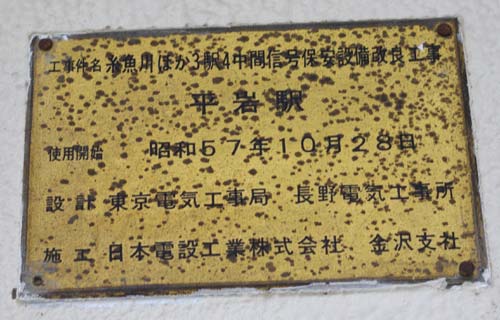 工事件名 糸魚川ほか3駅4中間信号保安設備改良工事
平岩駅
使用開始 昭和57年10月28日
設計 東京電気工事局 長野電気工事所
施工 日本電設工業株式会社 金沢支社